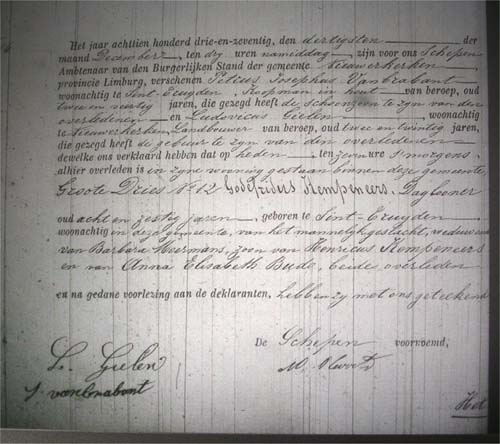 Het jaar achttien honderd drie-en-zeventig, den dertigsten der
maand December, ten dry uren namiddag, zijn voor ons Schepen
Ambtenaar van den Burgerlijken Stand der gemeente Nieuwerkerken
provincie Limburg, verschenen Petrus Josephus Vanbrabant
woonachtig te Sint-Truyden Koopman in hout van beroep, oud
twee en veertig jaren, die gezegd heeft de schoonzoon te zyn van den
overledenen en Ludovicus Gielen, woonachtig
te Nieuwerkerken, Landbouwer van beroep, oud twee en twintig jaren,
die gezegd heeft de gebuur te zyn van den overledenen
dewelke ons verklaard hebben dat op heden ten zeven ure s'morgens
alhier overleden is in zyne wooning gestaan binnen deze gemeente,
Groote Dries No 12 Godefridus Kempeneers, Daglooner
oud acht en zestig jaren, geboren te Sint-Truyden
woonachtig in deze gemeente, van het mannelyk geslacht, weduwenaar
van Barbara Moermans, zoon van Henricus Kempeneers
en van Anna Elisabeth Bude, beide overleden
en na gedane voorlezing aan de deklaranten, hebben zy met ons geteekend
De Schepen voorvoemd,
L. Gielen
vanbrabant
Het